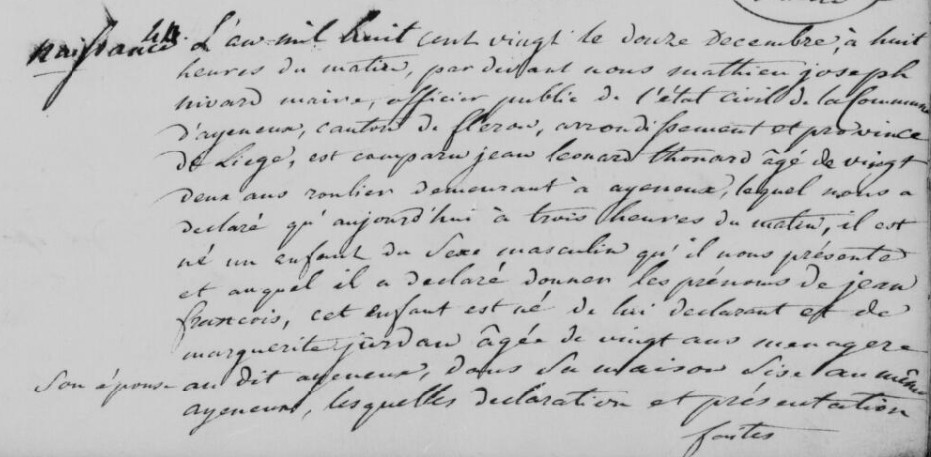 naissance 44. L'an mil huit cent vingt le douze decembre, à huit
heures du matin, par devant nous mathieu joseph
nivard maire, officier public de l'état civil de la Commune
d'ayeneux, canton de fleron, arrondissement et province
de Liege, est comparu jean leonard thonard âgé de vingt
deux ans roulier demeurant à ayeneux, lequel nous a
declaré qu'aujourd'hui à trois heures du matin, il est
né un enfant du Sexe masculin qu'il nous présente
et auquel il a declaré donner les prénoms de jean
francois, cet enfant est né de lui declarant et de
marguerite jurdan âgée de vingt ans menagere
Son épouse au dit ayeneux, dans Sa maison Sise au même
ayeneux, lesquelles declaration et présentation
faites